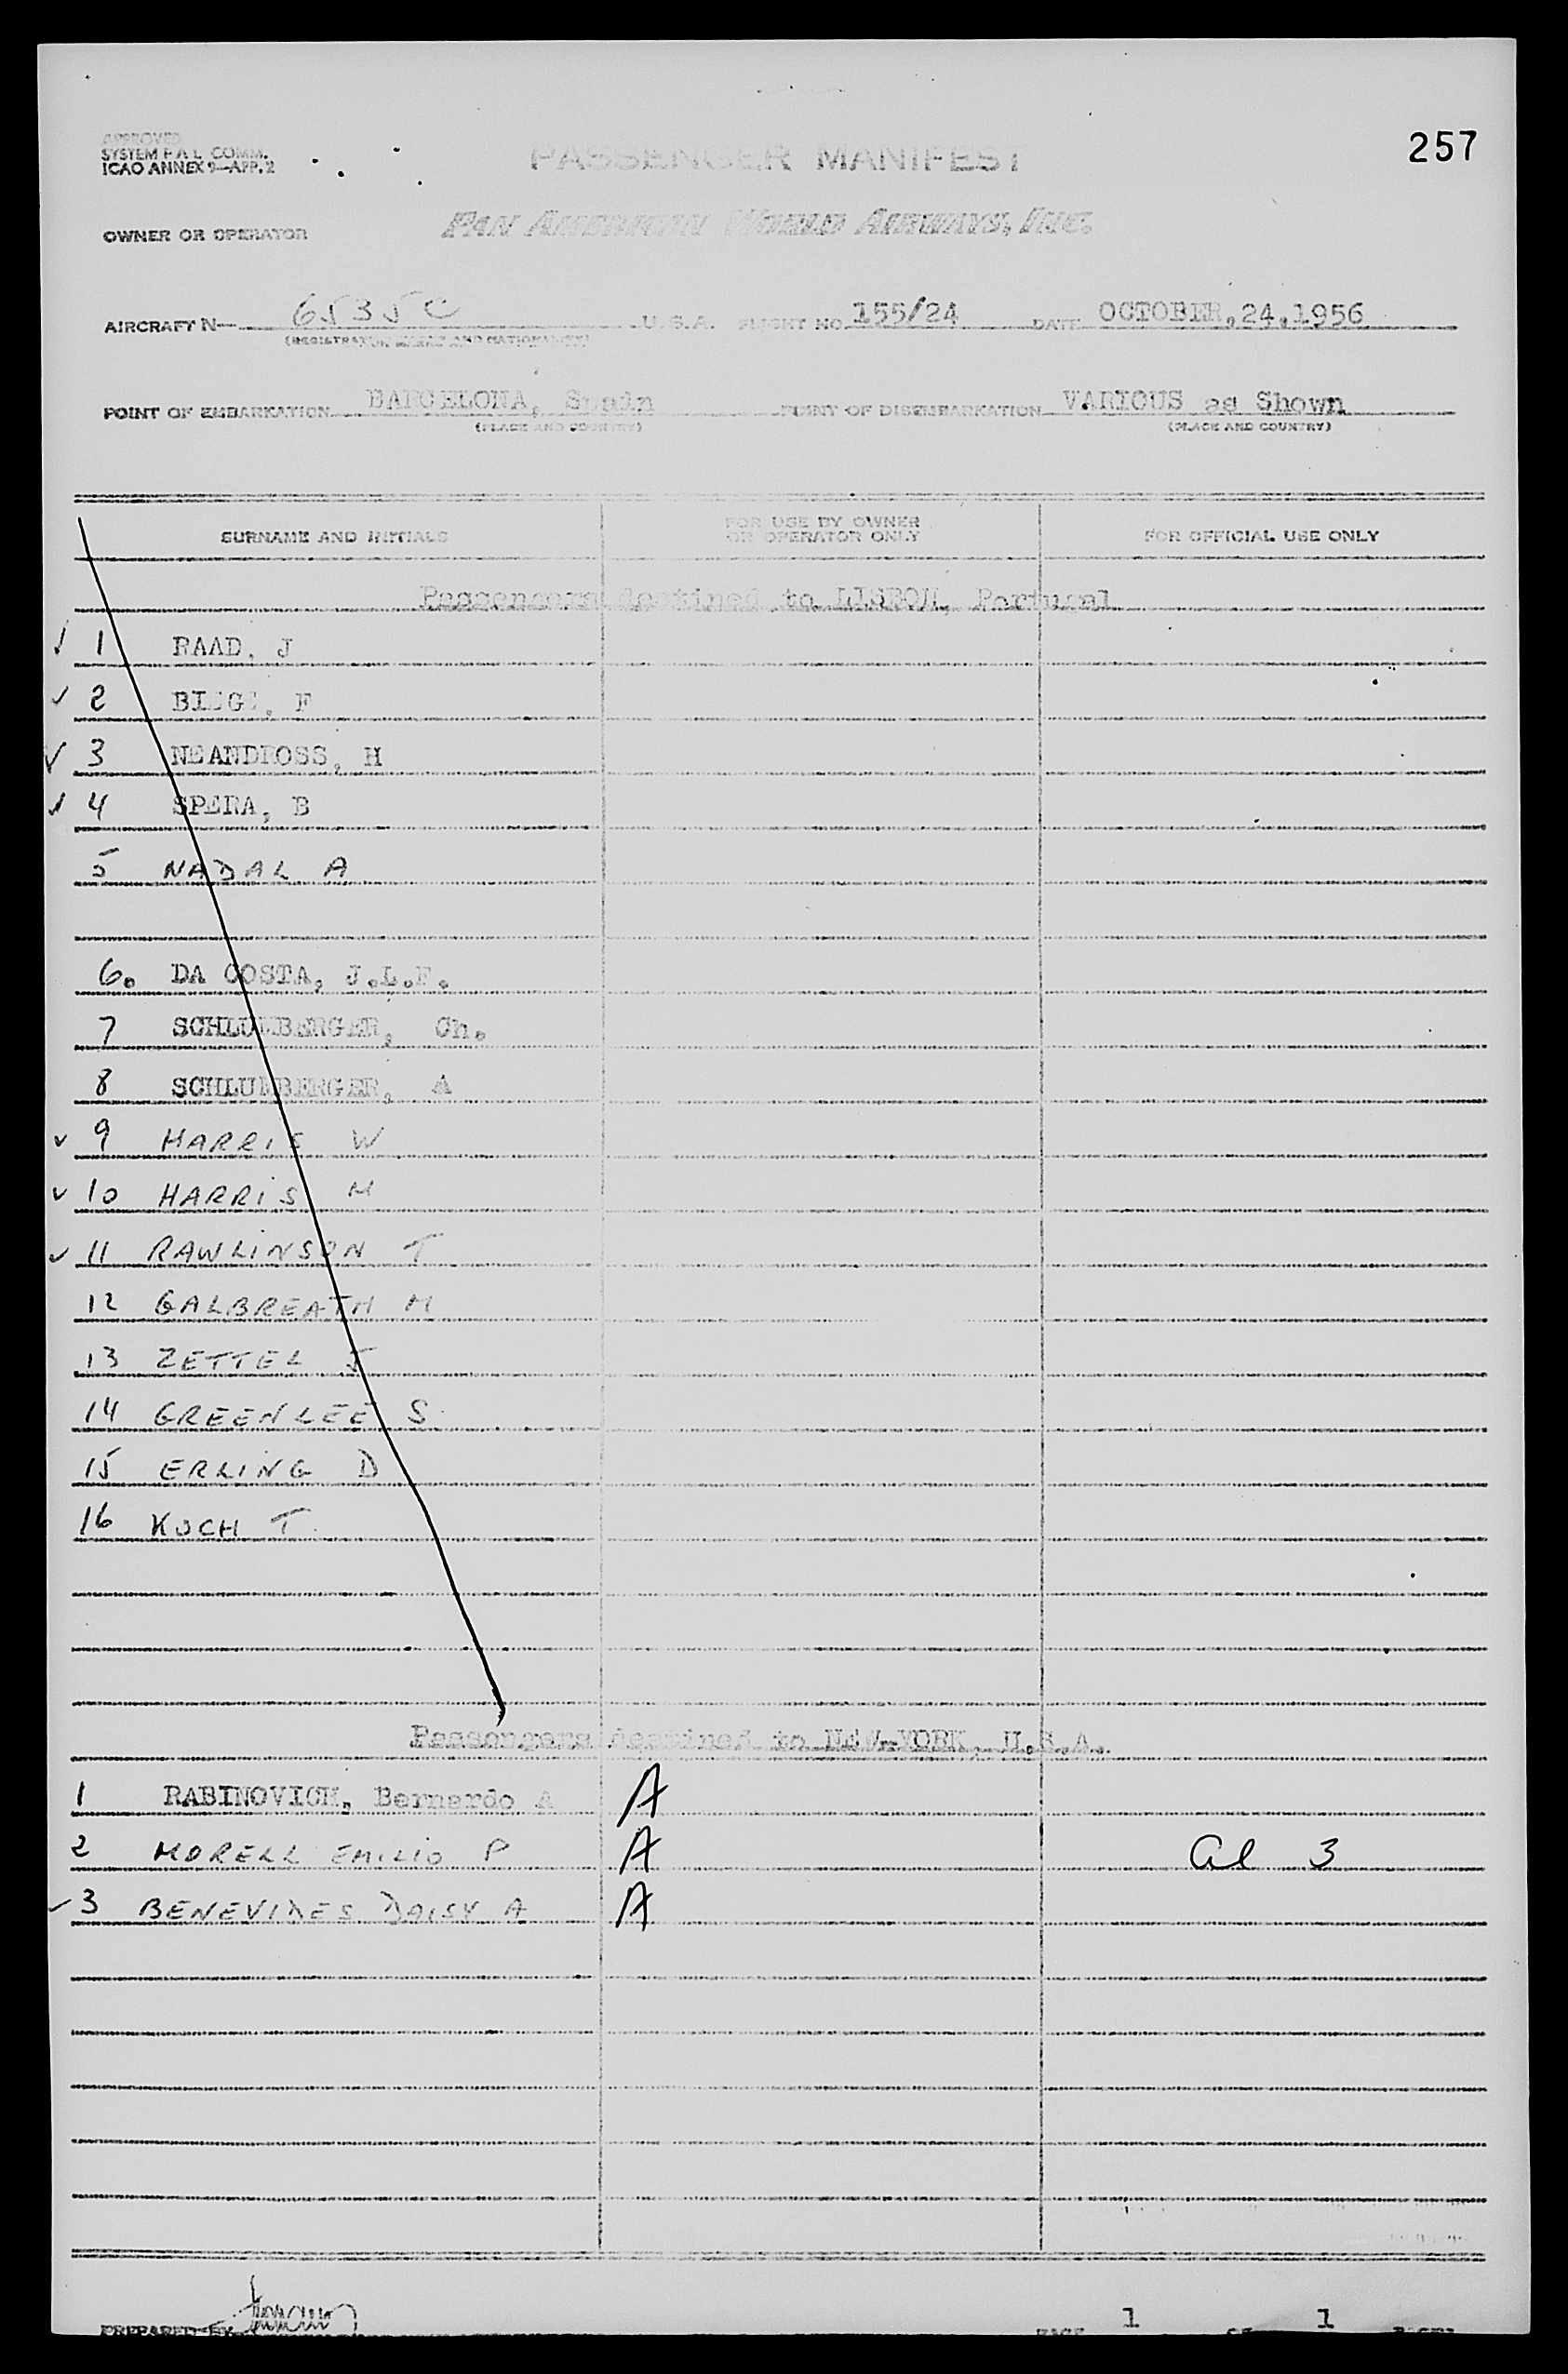 257
APPROVED
SYSTEM F.A.L. COMM.
ICAO ANNEX 9—APP. 2
PASSENGER MANIFEST
OWNER OR OPERATOR PAN AMERICAN WORLD AIRWAYS, INC.
AIRCRAFT N— 6535C U.S.A. FLIGHT NO. 155/24 DATE OCTOBER,24,1956
(REGISTRATION MARKS AND NATIONALITY)
POINT OF EMBARKATION BARCELONA, Spain POINT OF DISEMBARKATION VARIOUS as Shown
(PLACE AND COUNTRY) (PLACE AND COUNTRY)
SURNAME AND INITIALS FOR USE BY OWNER OR OPERATOR ONLY FOR OFFICIAL USE ONLY
Passengers destined to LISBON, Portugal
✓ 1 RAAD, J
✓ 2 F
✓ 3 NEANDROSS, H
✓ 4 SPERA, B
5 NADAL A
6. DA COSTA, J.L.F.
7 SCHLUMBERGER, Ch.
8 SCHLUMBERGER, A
✓ 9 HARRIS W
✓ 10 HARRIS M
✓ 11 RAWLINSON T
12 GALBREATH M
13 ZETTEL J
14 GREENLEE S
15 ERLING D
16 KOCH T
Passengers destined to NEW-YORK, U.S.A.
1 RABINOVICH, Bernardo A A
2 MORELL EMILIO P A al 3
✓ 3 BENEVIDES DAISY A A
PREPARED BY PAGE 1 OF 1 PAGES